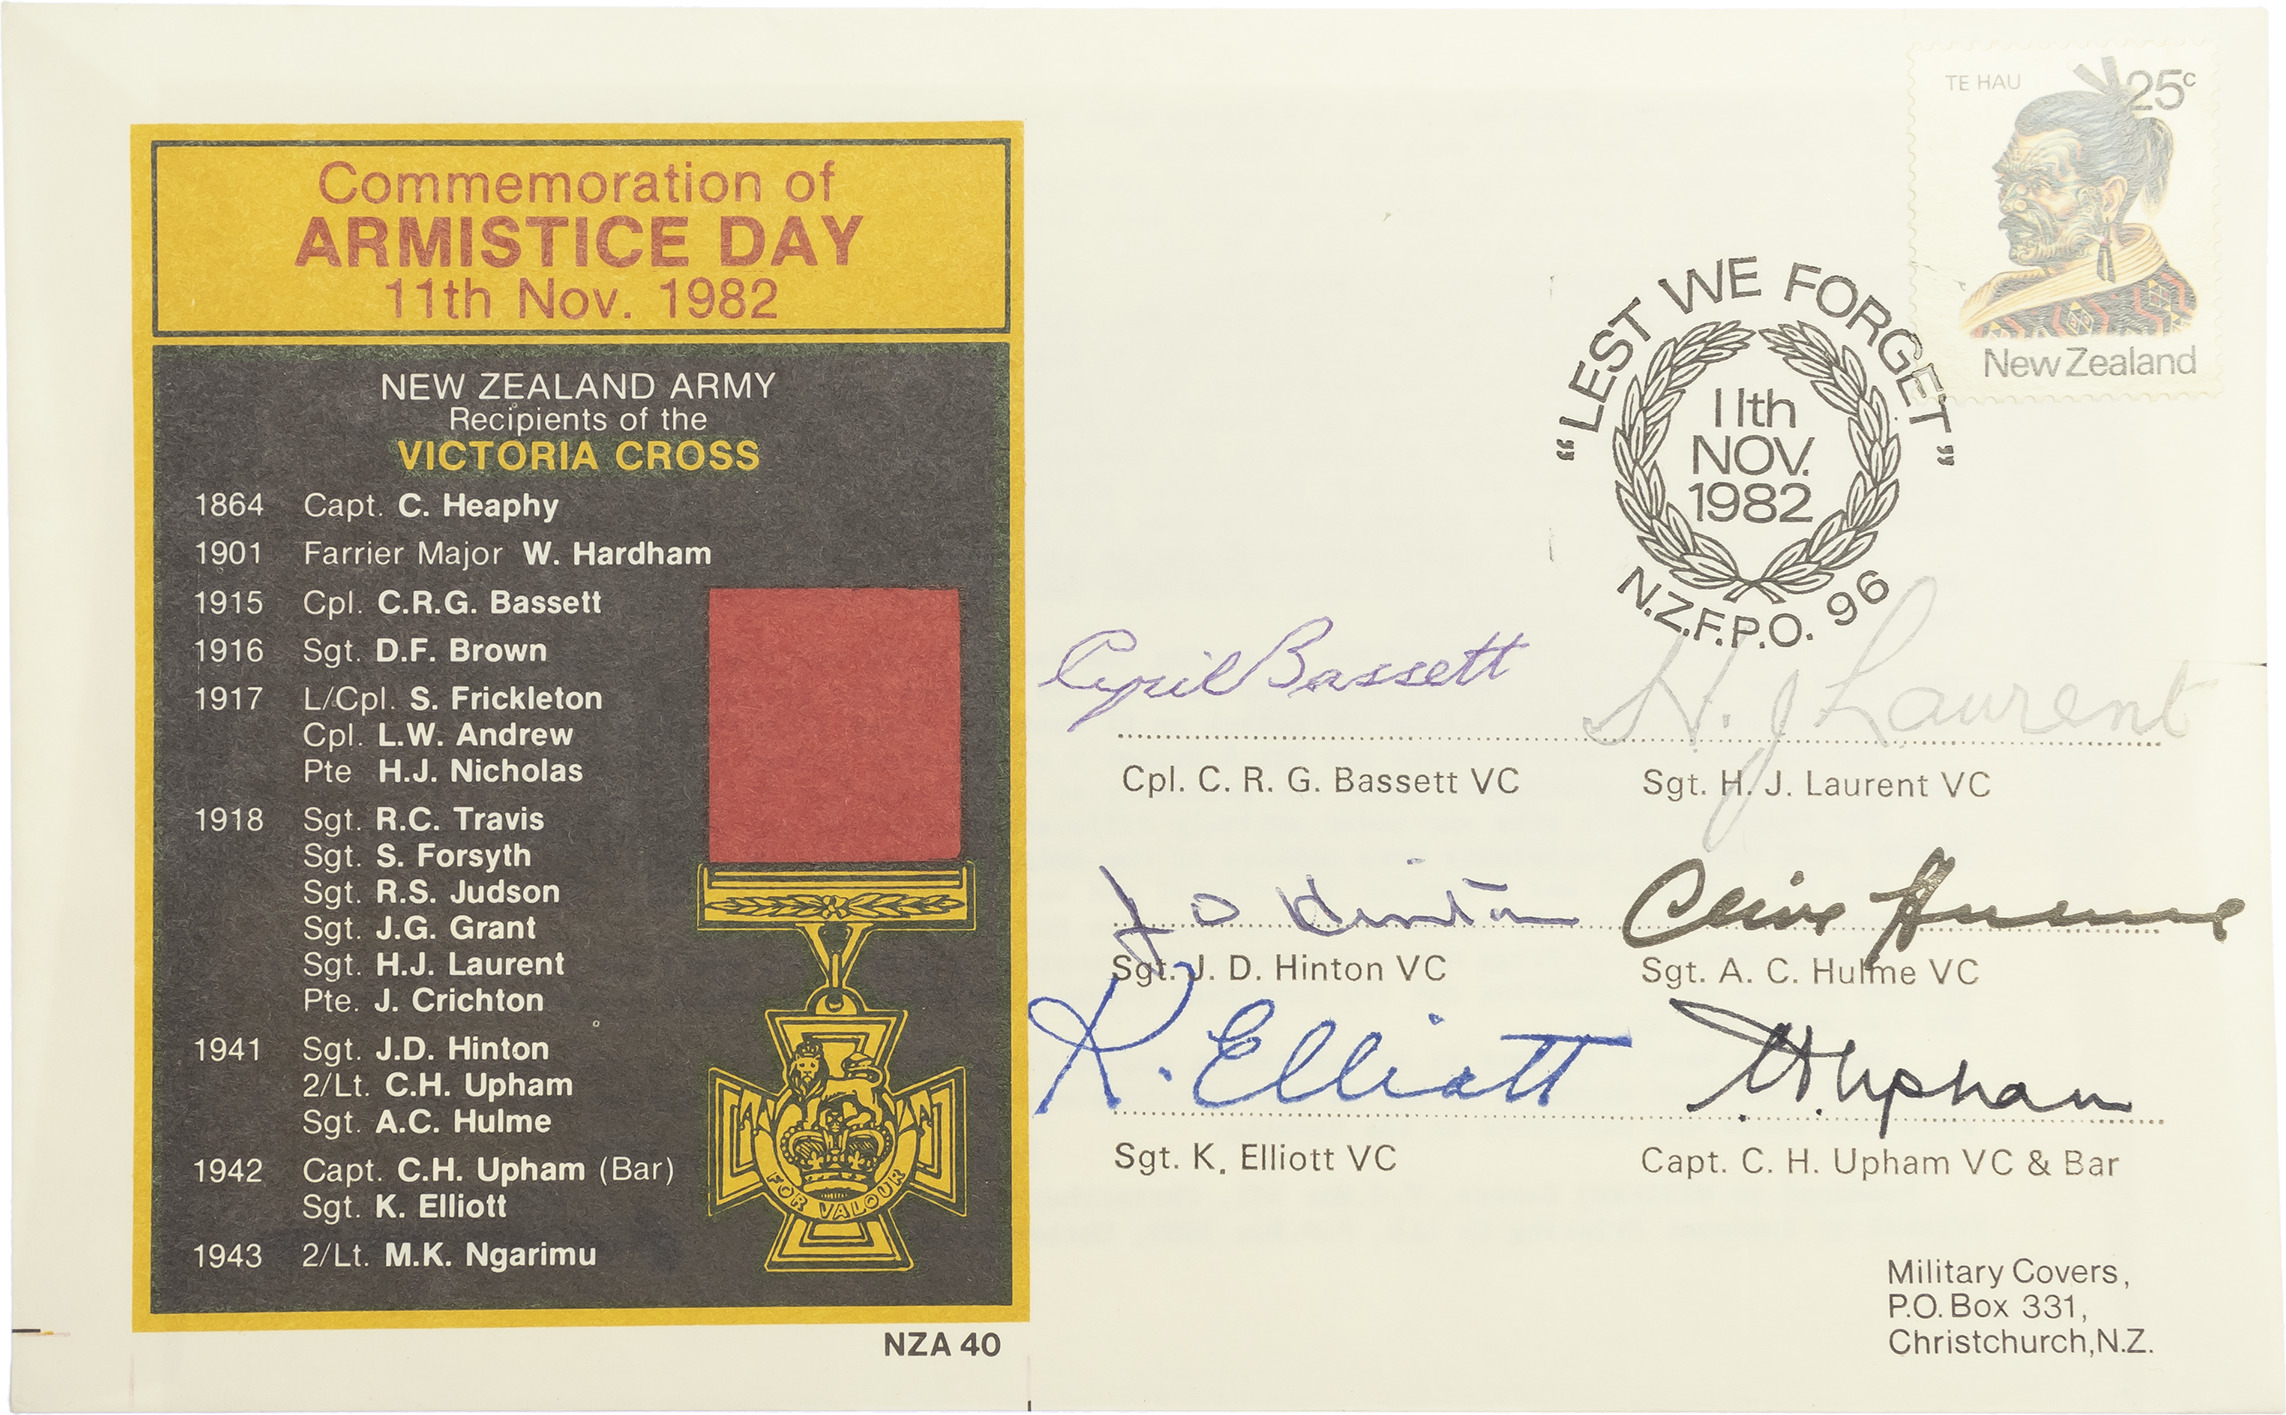 Commemoration of
ARMISTICE DAY
11th Nov. 1982
NEW ZEALAND ARMY
Recipients of the
VICTORIA CROSS
1864 Capt. C. Heaphy
1901 Farrier Major W. Hardham
1915 Cpl. C.R.G. Bassett
1916 Sgt. D.F. Brown
1917 L/Cpl. S. Frickleton
Cpl. L.W. Andrew
Pte H.J. Nicholas
1918 Sgt. R.C. Travis
Sgt. S. Forsyth
Sgt. R.S. Judson
Sgt. J.G. Grant
Sgt. H.J. Laurent
Pte. J. Crichton
1941 Sgt. J.D. Hinton
2/Lt. C.H. Upham
Sgt. A.C. Hulme
1942 Capt. C.H. Upham (Bar)
Sgt. K. Elliott
1943 2/Lt. M.K. Ngarimu
FOR VALOUR
NZA 40
TE HAU 25c
New Zealand
"LEST WE FORGET"
11th
NOV.
1982
N.Z.F.P.O. 96
Cyril Bassett
Cpl. C. R. G. Bassett VC
H. J Laurent
Sgt. H. J. Laurent VC
J D Hinton
Sgt. J. D. Hinton VC
Clive Hulme
Sgt. A. C. Hulme VC
K. Elliott
Sgt. K. Elliott VC
C.H. Upham
Capt. C. H. Upham VC & Bar
Military Covers,
P.O. Box 331,
Christchurch, N.Z.